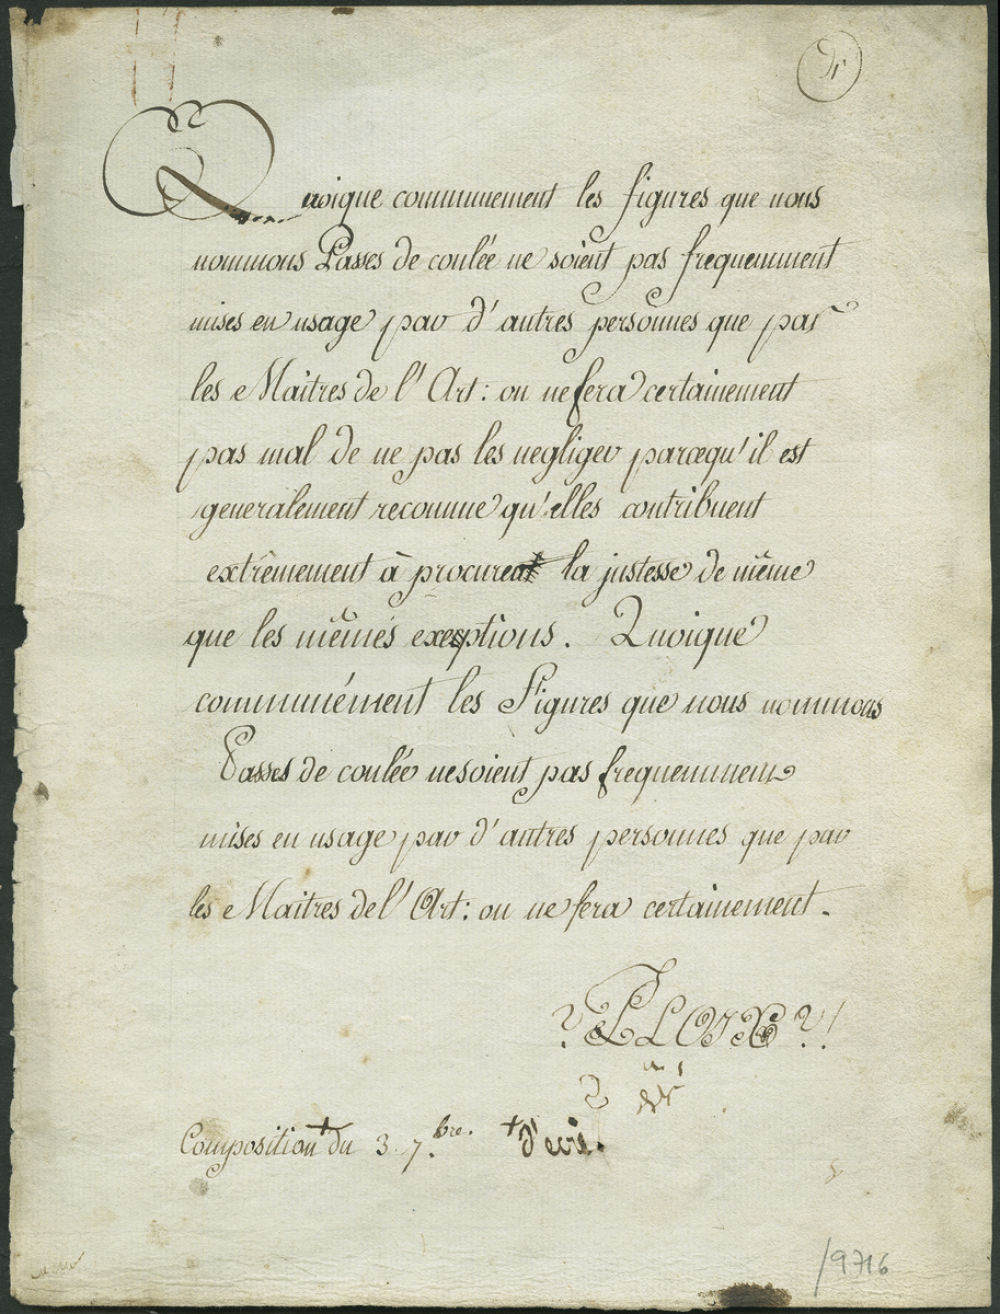 Quoique communement les figures que nous
nommons Passes de coulée ne soient pas frequemment
mises en usage par d'autres personnes que par
les Maîtres de l'Art: on ne fera certainement
pas mal de ne pas les negliger parcequ'il est
generalement reconnue qu'elles contribuent
extrêmement à procurer la justesse de même
que les mêmes exeptions. Quoique
communément les Figures que nous nommons
Passes de coulée ne soient pas frequemment
mises en usage par d'autres personnes que par
les Maitres de l'Art: on ne fera certainement.
Composition du 3. 7.bre. d'ecri.
19716